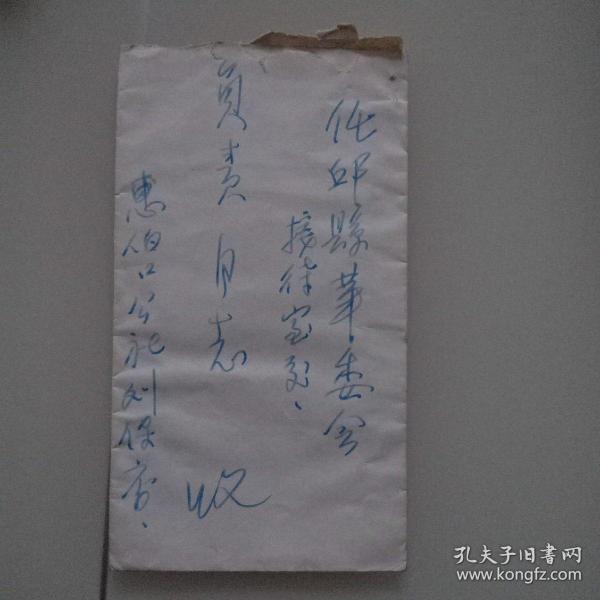 任邱縣革委会
接待室交、
負责同志 收
惠伯口公社刘保
孔夫子旧書网
www.kongfz.com